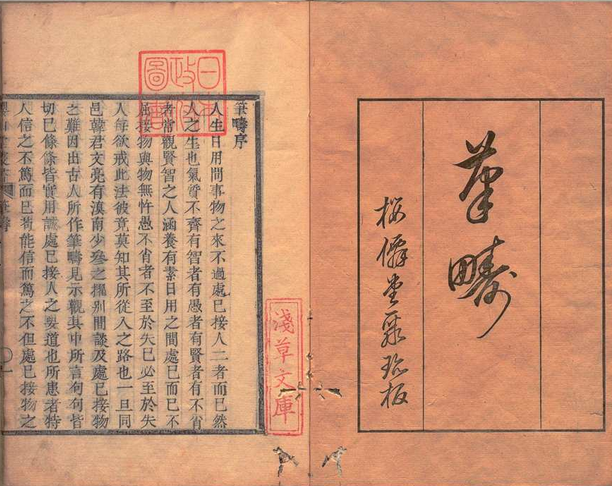 筆疇
板
筆疇序
人生日用間事物之來不過處已接人二者而已然
人之生也氣質不齊有智者有愚者有賢者有不肖
者常觀賢智之人涵養有素日用之間處已而已不
屈接物與物無忤愚不省者不至於失已必至於失
人每欲戒此法彼竟莫知其所從入之路也一旦同
邑韓君文亮有滇南少參之擢别間議及處已接物
之難因出古人所作筆疇見示觀其中所言句句皆
切已條條皆實用誠處已接人之要道也所患者特
人信之不篤而已苟能信而篤之不但處已接物之
日本政府圖書
淺草文庫